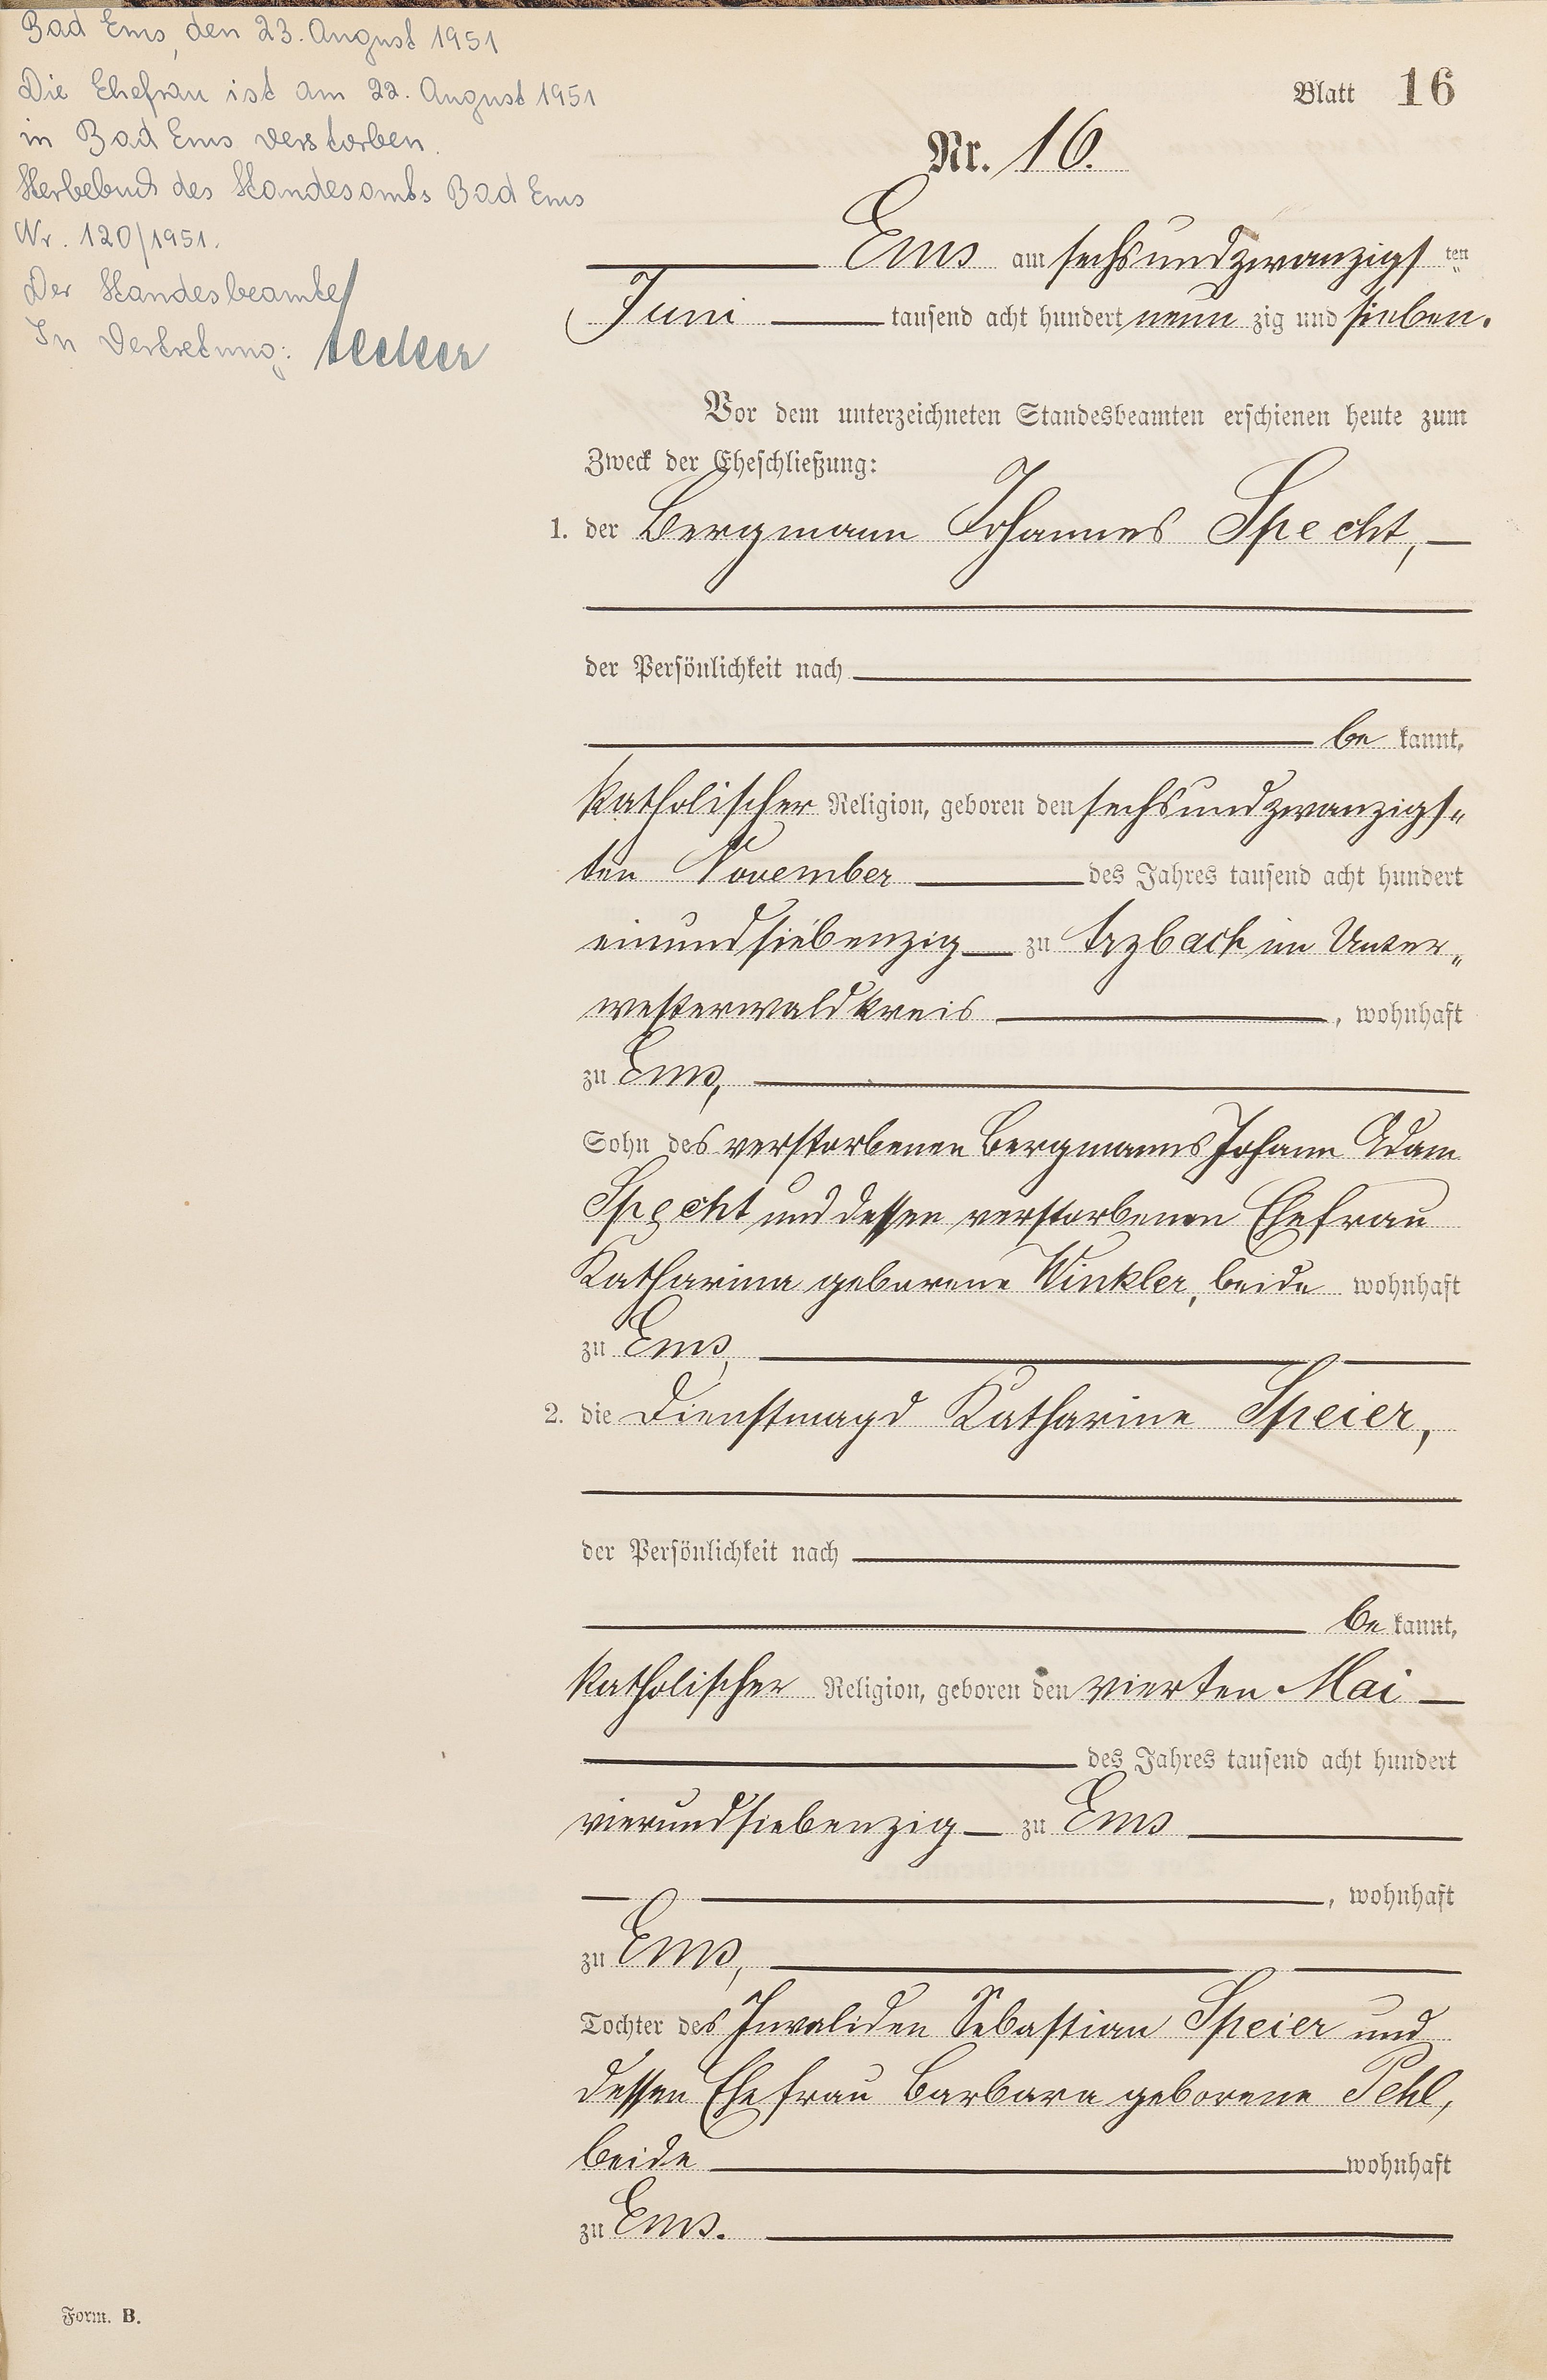 Bad Ems, den 23. August 1951
Die Ehefrau ist am 22. August 1951
in Bad Ems verstorben.
Sterbebuch des Standesamts Bad Ems
Nr. 120/1951.
Der Standesbeamte
In Vertretung:
Blatt 16
Nr. 16.
Ems am sechsundzwanzigsten
Juni tausend acht hundert neun zig und sieben.
Vor dem unterzeichneten Standesbeamten erschienen heute zum
Zweck der Eheschließung:
1. der Bergmann Johannes Specht,
der Persönlichkeit nach
be kannt,
katholischer Religion, geboren den sechsundzwanzigs-
ten November des Jahres tausend acht hundert
einundsiebenzig zu Arzbach im Unter-
westerwaldkreis, wohnhaft
zu Ems,
Sohn des verstorbenen Bergmanns Johann Adam
Specht und dessen verstorbenen Ehefrau
Katharina geborene Winkler, beide wohnhaft
zu Ems,
2. die Dienstmagd Katharine Speier,
der Persönlichkeit nach
be kannt,
katholischer Religion, geboren den vierten Mai
des Jahres tausend acht hundert
vierundsiebenzig zu Ems
, wohnhaft
zu Ems,
Tochter des Invaliden Sebastian Speier und
dessen Ehefrau Barbara geborene Pehl,
beide wohnhaft
zu Ems.
Form. B.